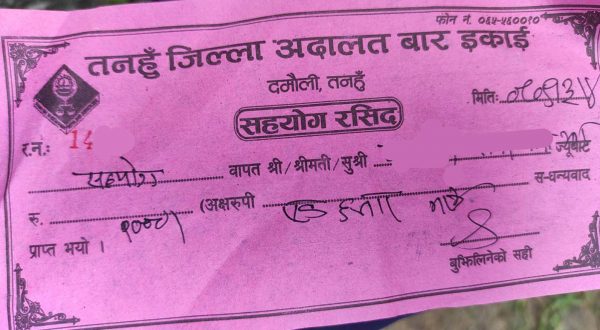 फोन नं. ०६५-५६००१०
तनहुँ जिल्ला अदालत बार इकाई
दमौली, तनहुँ
मितिः
सहयोग रसिद
र.नं.: 14
सहयोग वापत श्री/श्रीमती/सुश्री
रु. (अक्षरुपी एक हजार मात्र स-धन्यवाद
प्राप्त भयो ।
बुझिलिनेको सही